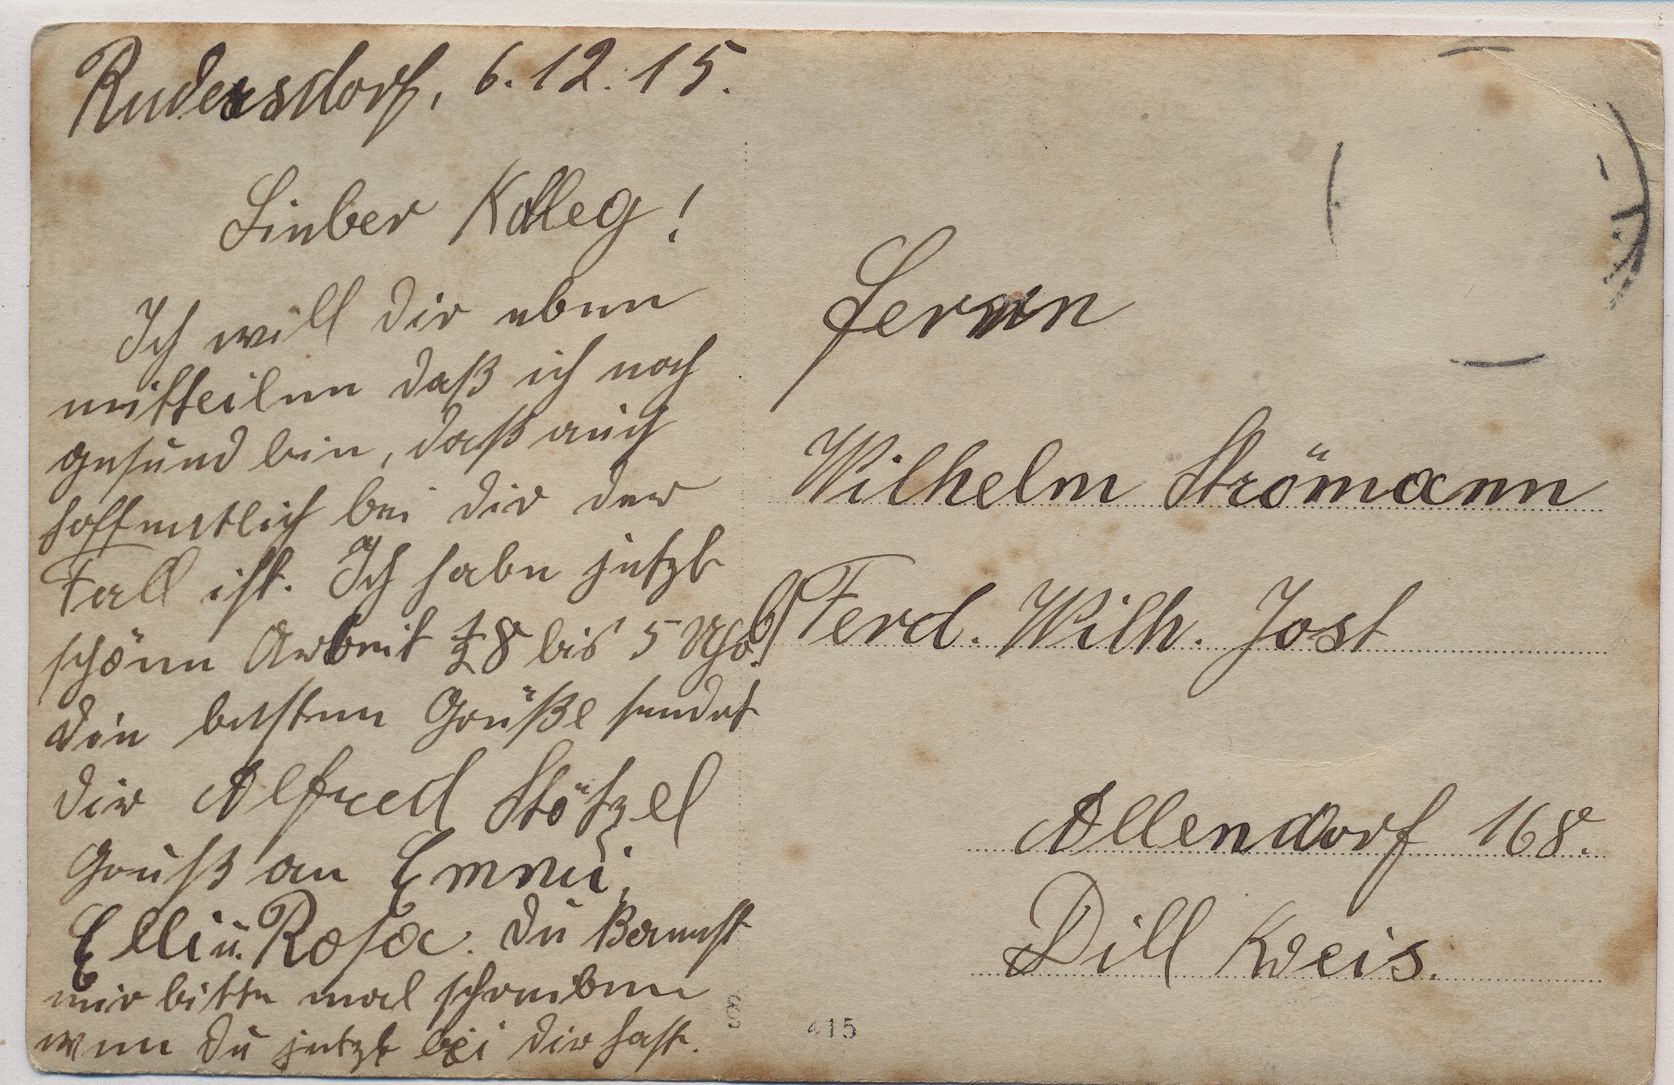 Rudersdorf, 6.12.15.
Lieber Kolleg!
Ich will dir eben
mitteilen daß ich noch
gesund bin, daß auch
hoffentlich bei dir der
Fall ist. Ich habe jetzt
schöne Arbeit ½8 bis 5 Uhr!
die besten Grüße sendet
dir Alfred Stötzel
Gruß an Emmi,
Elli u. Rosa. Du kannst
mir bitte mal schreiben
wen du jetzt bei dir hast.
Herrn
Wilhelm Strömann
b/ Ferd. Wilh. Jost
Allendorf 168.
Dill Kreis.
415